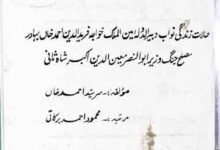 حالات زندگی نواب دبیر الدولہ امین الملک خواجہ فرید الدین احمد خاں بہادر
مصلح جنگ وزیر ابو النصر معین الدین اکبر شاہ ثانی
مؤلفہ، سر سید احمد خاں
مرتبہ، محمود احمد برکاتی